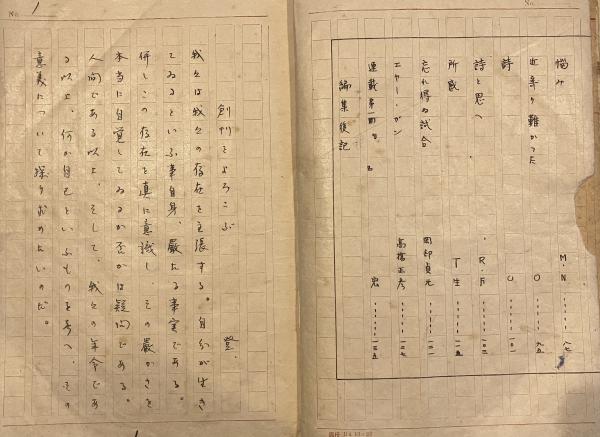 No.
悩み M・N……八七
近寄り難かった O……九五
詩 U……一〇一
詩と思へ R・F……一〇三
所感 T生……一一五
忘れ得ぬ試合 岡部貞元……
エヤー・ガン 高橋正彦……一二七
連載第一回 忠……一三五
編集後記
No. 1
創刊をよろこぶ 登.
我々は我々の存在を主張する。自分が生き
てゐるといふ事自身、厳たる事実である。
併しこの存在を真に意識し、その厳かさを
本当に自覚してゐるか否かは疑問である。
人間である以上、そして、我々の年令であ
る以上、何か自己といふものを考へ、その
意義について探り求めたいのだ。